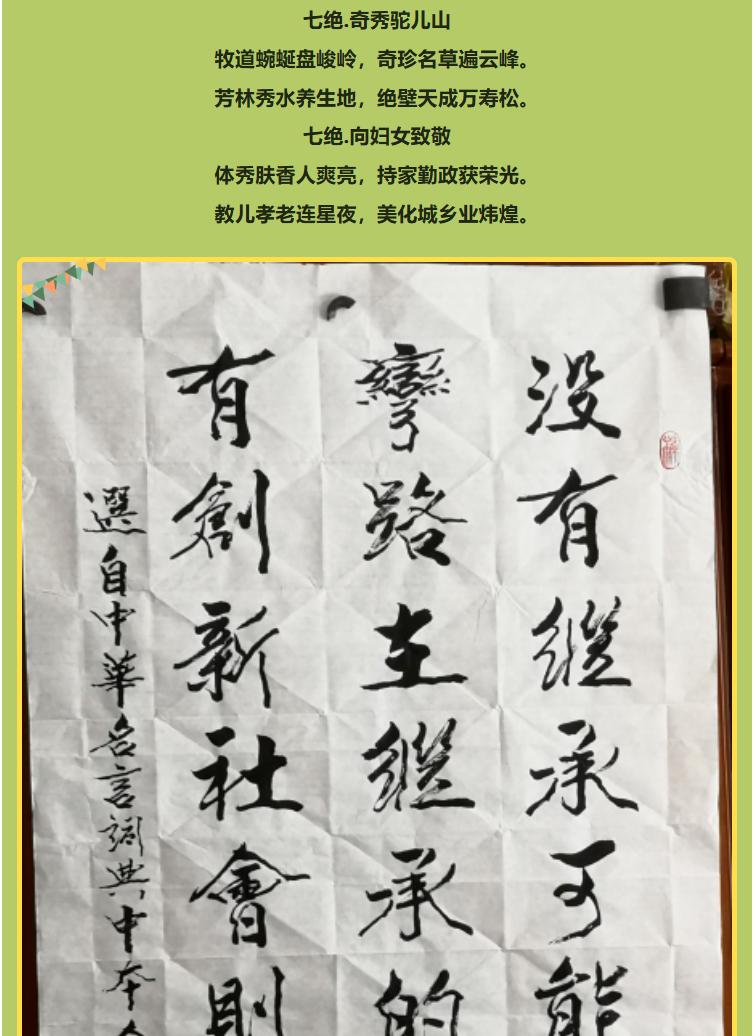 七绝.奇秀驼儿山
牧道蜿蜒盘峻岭，奇珍名草遍云峰。
芳林秀水养生地，绝壁天成万寿松。
七绝.向妇女致敬
体秀肤香人爽亮，持家勤政获荣光。
教儿孝老连星夜，美化城乡业炜煌。
没有繼承可能
彎路在繼承的
有創新社會則
選自中華名言詞典中本